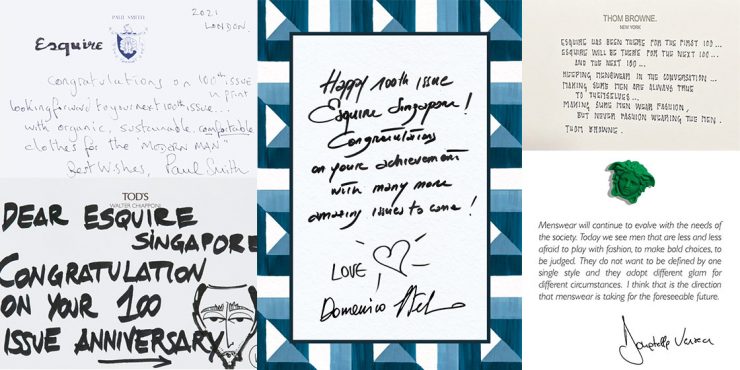 PAUL SMITH
2021
LONDON.
Esquire
Congratulations on 100th issue
in print
looking forward to your next 100th issue...
with organic, sustainable, comfortable
clothes for the MODERN MAN"
Best Wishes, Paul Smith
TOD'S
WALTER CHIAPPONI
DEAR ESQUIRE
SINGAPORE
CONGRATULATION
ON YOUR 100
ISSUE ANNIVERSARY
Happy 100th Issue
Esquire Singapore!
Congratulations
on your achievement
with many more
amazing issues to come!
LOVE
Domenico Stefano
THOM BROWNE.
NEW YORK
ESQUIRE HAS BEEN THERE FOR THE FIRST 100...
ESQUIRE WILL BE THERE FOR THE NEXT 100...
AND THE NEXT 100...
KEEPING MENSWEAR IN THE CONVERSATION...
MAKING SURE MEN ARE ALWAYS TRUE
TO THEMSELVES...
MAKING SURE MEN WEAR FASHION,
BUT NEVER FASHION WEARING THE MEN.
THOM BROWNE.
Menswear will continue to evolve with the needs of
the society. Today we see men that are less and less
afraid to play with fashion, to make bold choices, to
be judged. They do not want to be defined by one
single style and they adopt different glam for
different circumstances. I think that is the direction
that menswear is taking for the foreseeable future.
Donatella Versace